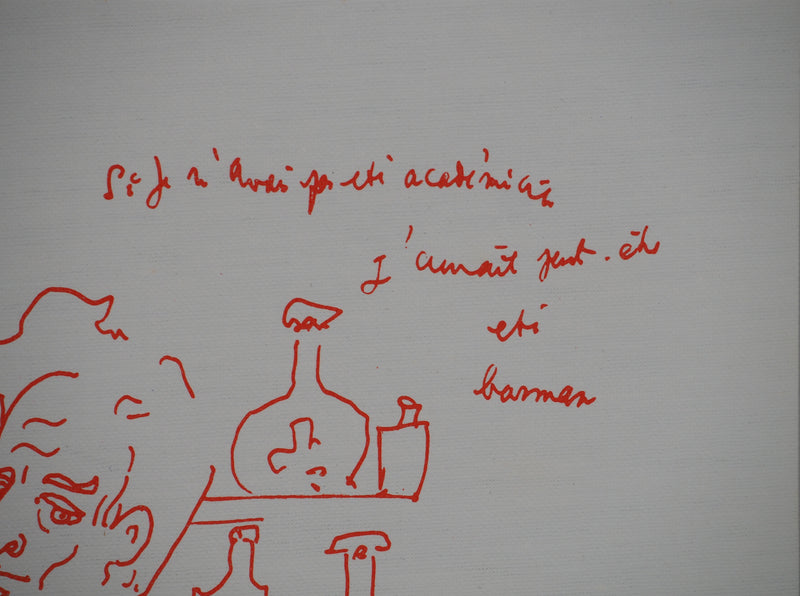 Si je n'avais pas été académicien
J'aurait peut-être
été
barman